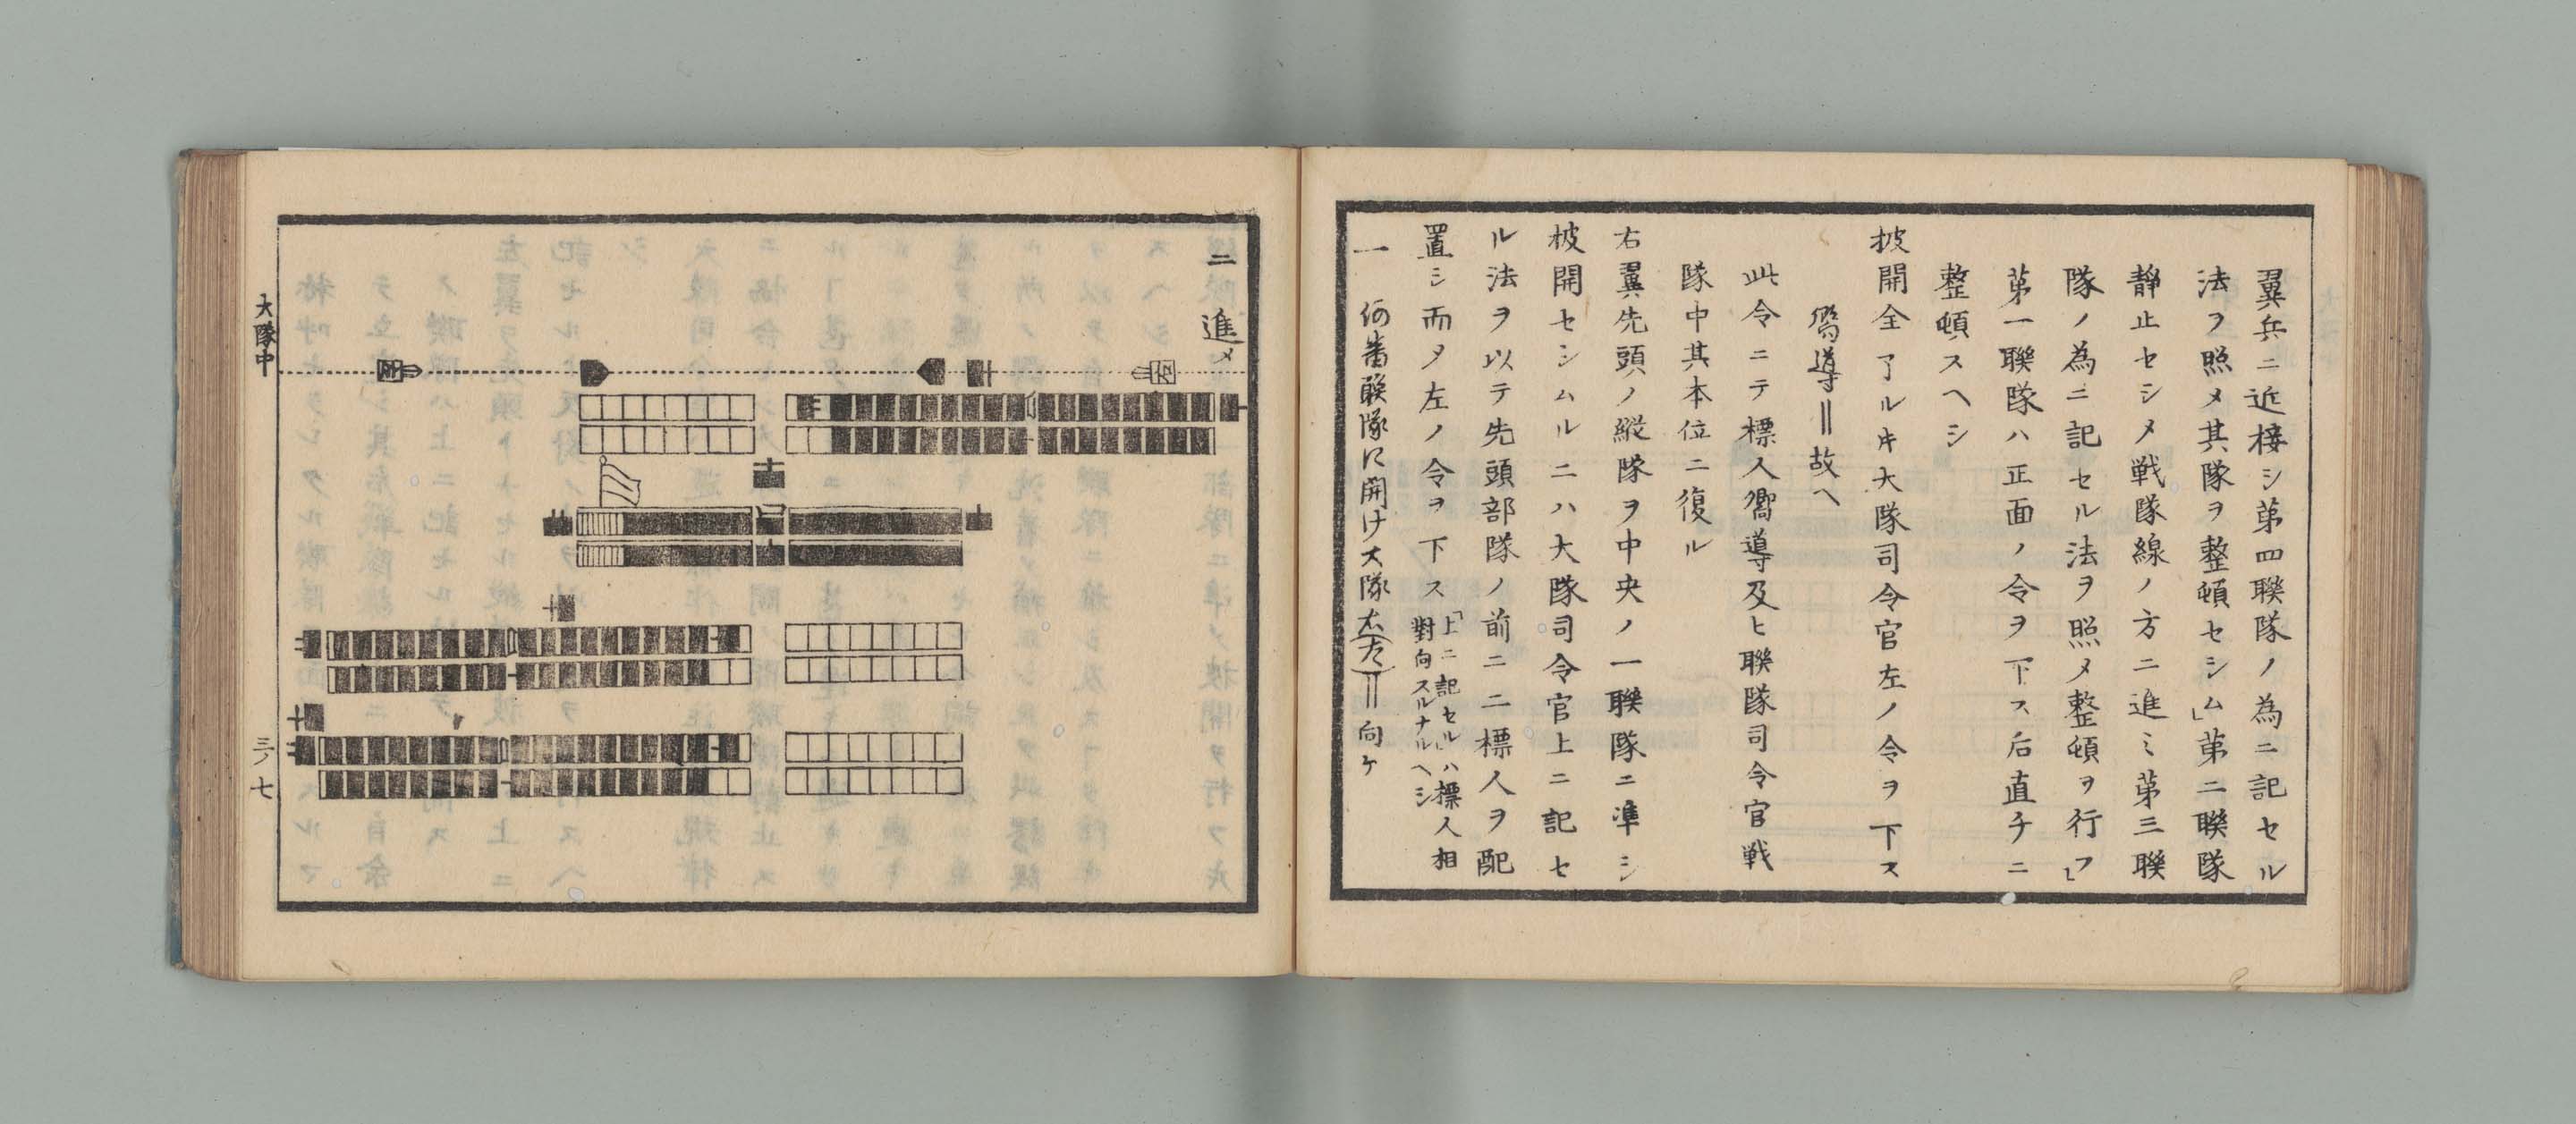 翼兵ニ近接シ第四聯隊ノ為ニ記セル
法ヲ照メ其隊ヲ整頓セシム」第二聯隊
静止セシメ戦隊線ノ方ニ進ミ第三聯
隊ノ為ニ記セル法ヲ照メ整頓ヲ行フ」
第一聯隊ハ正面ノ令ヲ下ス后直チニ
整頓スヘシ
披開全了ルキ大隊司令官左ノ令ヲ下ス
嚮導‖故へ
此令ニテ標人嚮導及ヒ聯隊司令官戦
隊中其本位ニ復ル
右翼先頭ノ縦隊ヲ中央ノ一聯隊ニ準シ
披開セシムルニハ大隊司令官上ニ記セ
ル法ヲ以テ先頭部隊ノ前ニ二標人ヲ配
置シ而メ左ノ令ヲ下ス「上ニ記セル」ハ標人相
對向スルナルヘシ
一 何番聯隊に開け大隊右(左)‖向ケ
二 進メ
大隊中
三ノ七
右